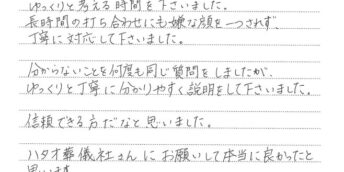 ゆっくり考える時間を下さいました。
長時間の打ち合わせにも嫌な顔を一つされず、
丁寧に対応して下さいました。
分からないことを何度も同じ質問をしましたが、
ゆっくりと丁寧に分かりやすく説明をして下さいました。
信頼できる方だなと思いました。
ハタオ葬儀社さんにお願いして本当に良かったと
思います